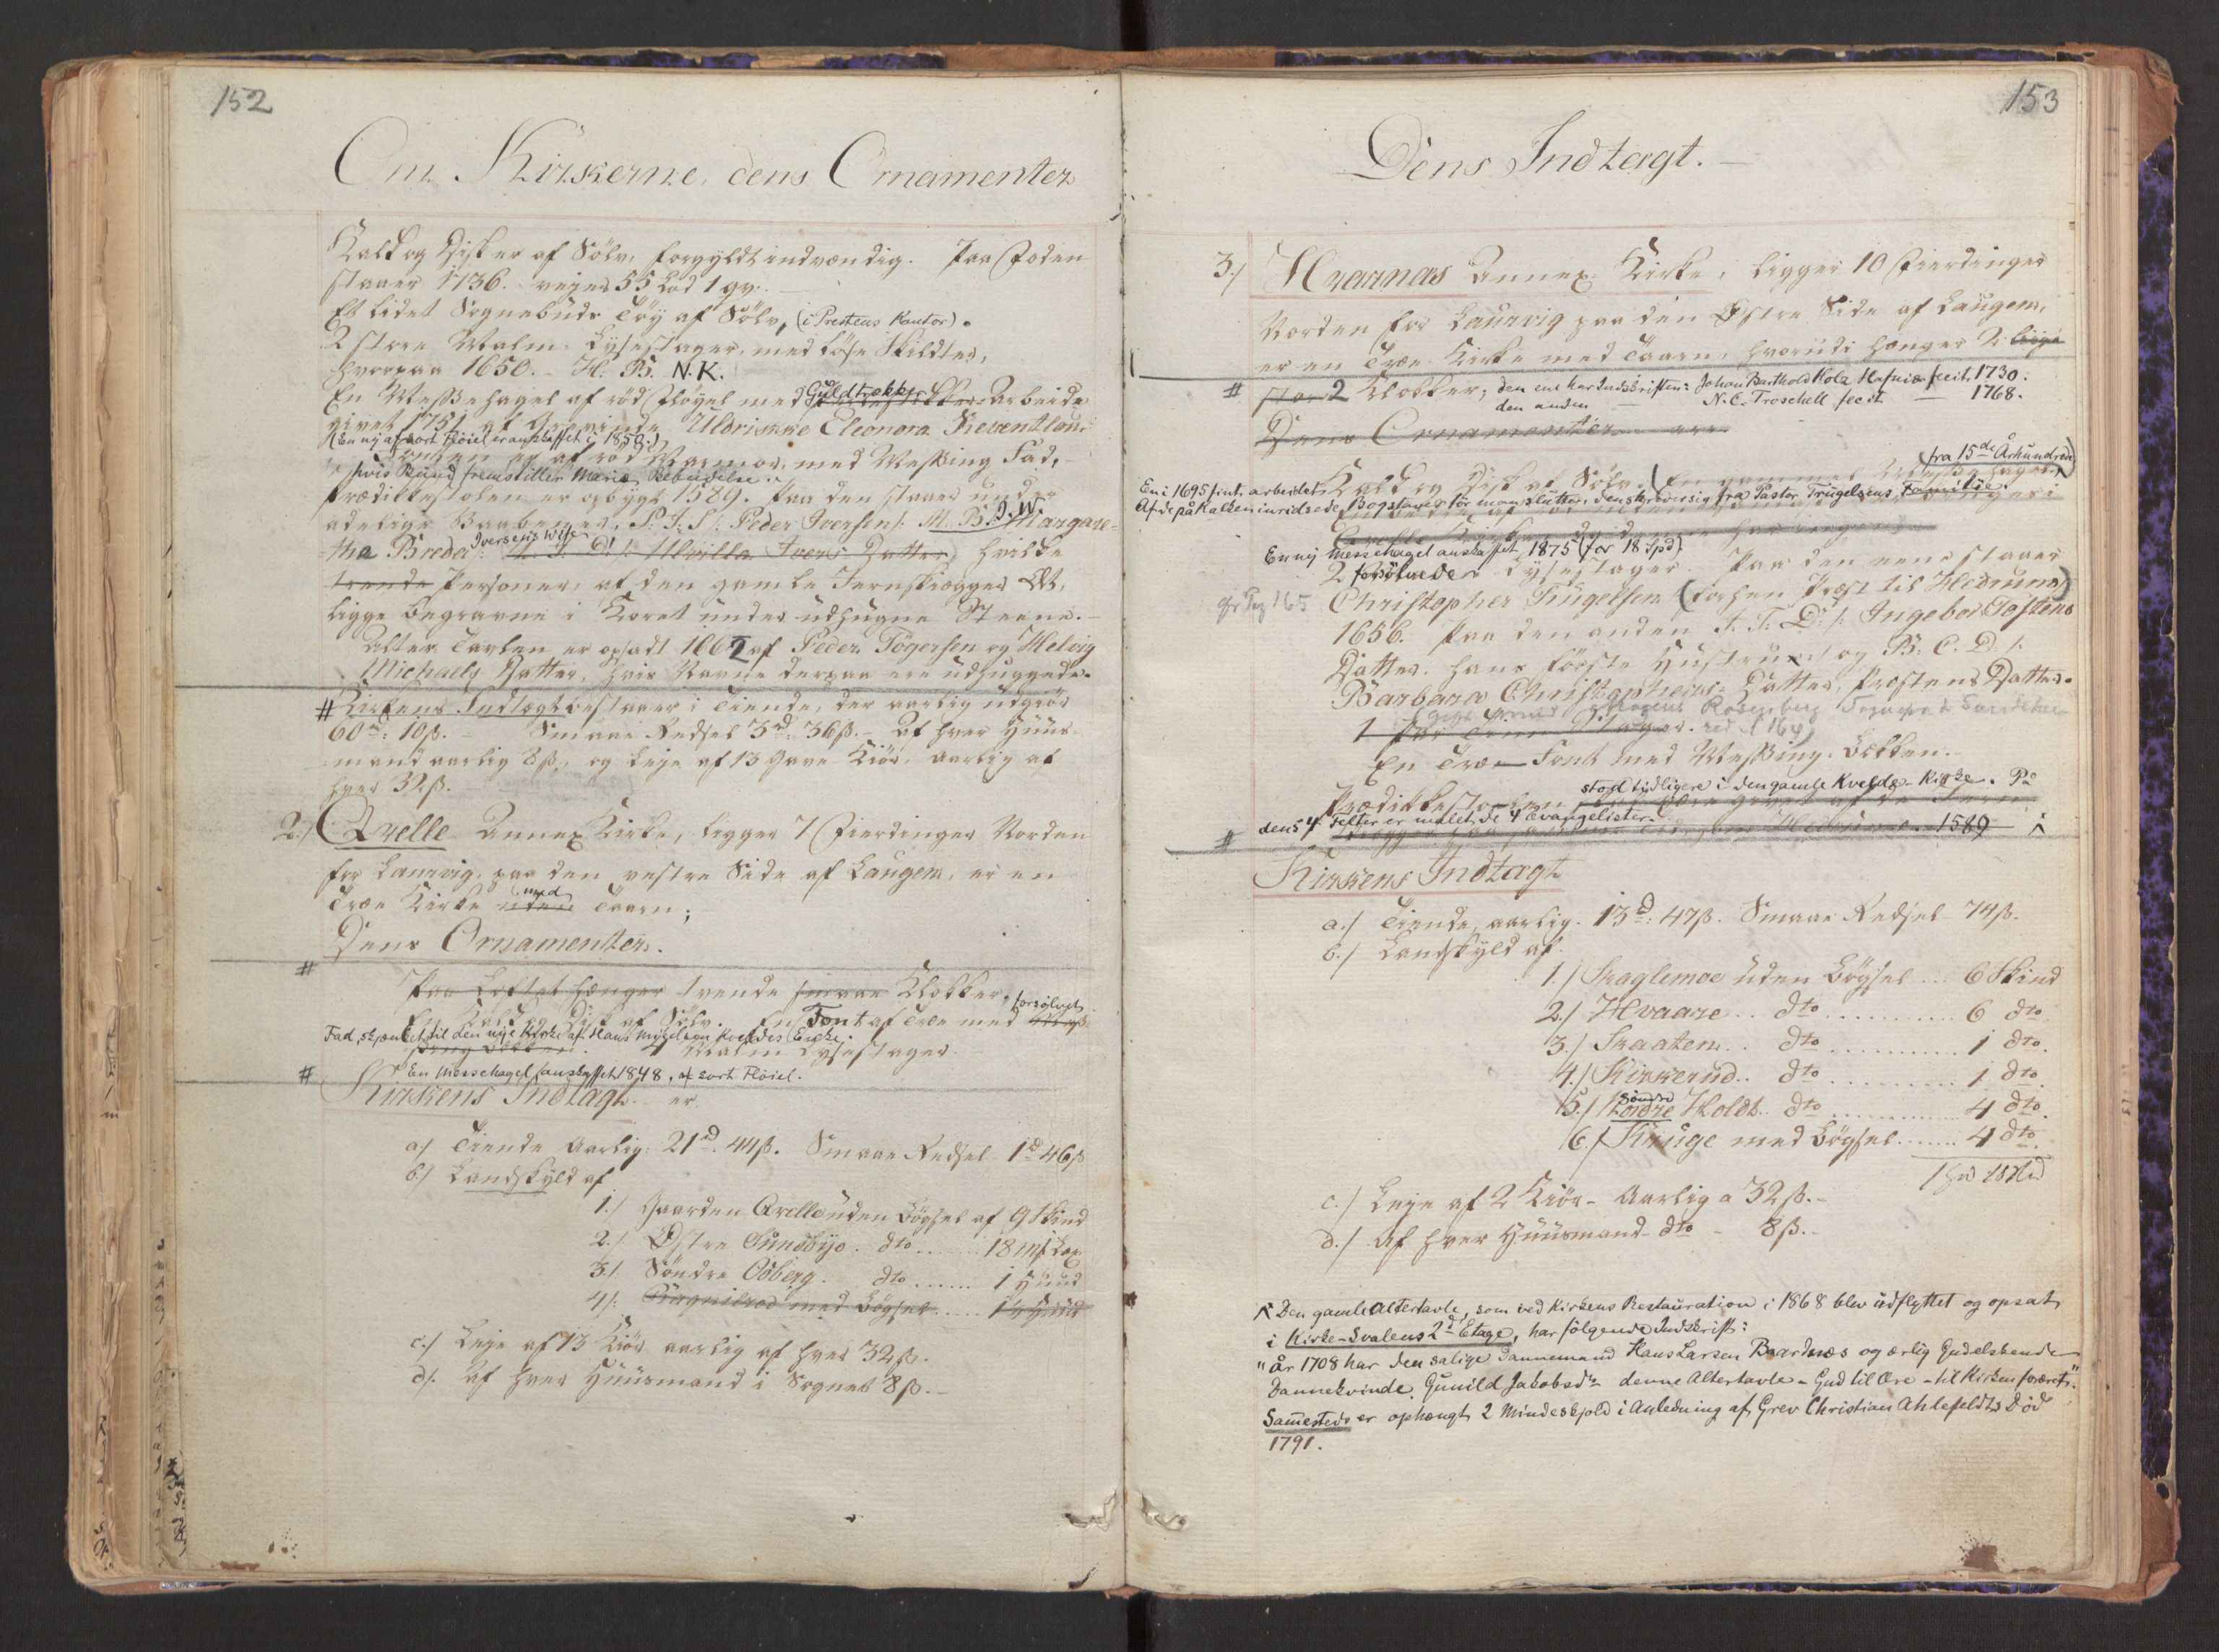 152
Om Kirkerne, dens Ornamenter
Kalk og Disk er af Sölv, forgyldt indvendig. Paa Foden
staaer 1736. vejer 55 Lod 1 qv.
Et lidet Sognebuds Töy af Sölv, (i Prestens Kontor).
2 store Malm Lysestager, med löse Skildter,
hvorpaa 1650. H. B. N. K.
En Messehagel af röd Fløyel med Guldtrækker Arbeide
givet 1751 af Grevinde Uldrikke Eleonora Reventlou.
(En ny af sort Fløiel er anskaffet i 1859.)
Fonten er af röd Marmor, med Messing Fad,
hvis Bund fremstiller Mariæ Bebudelse.
Prædikestolen er opbygt 1589. Paa den staaer under
adelige Vaabener, P. I. S /: Peder Iversen /: M. B. I. W. Margare-
tha Breder Iversens Wife U. I. D. /: Ulvilla Ivers Datter hvilke
trende Personer, af den gamle Jernskiægger Æt,
ligge begravne i Koret under udhugne Steene.
Alter Tavlen er opsadt 1662 af Peder Tögersen og Helvig
Michaels Datter, hvis Navne derpaa ere udhuggede.
# Kirkens Indtægt bestaaer i Tiende, der aarlig udgiör
60 rd: 10 ß. Smaae Redsel 3 rd: 36 ß. Af hver Huus-
mand aarlig 8 ß, og Leje af 13 Gave Kiör, aarlig af
hver 32 ß.
2./ Qvelle Annex Kirke, ligger 7 Fierdinger Norden
for Laurvig, paa den vestre Side af Laugen, er en
Træe Kirke uden med Taarn;
Dens Ornamenter.
#
Paa Loftet hænger tvende smaae Klokker.
En Kalk og Disk af Sölv. En Font af Træe med forsølvet
Fad, skjænket til den nye Kirke af Hans Mögelson Kveldes Enke.
4 Malm Lysestager.
# En Messehagel anskaffet 1848, af sort Fløiel.
Kirkens Indtægt er
a/ Tiende Aarlig 21 rd. 44 ß. Smaae Redsel 1 d 46 ß
b/ Landskyld af
1./ Gaarden Qvelle uden Bögsel af 9 Skind
2./ Østre Sundbye dto ...... 18 mk
3./ Söndre Odberg dto ...... 1 Huud
4/: med Bögsel ..... 1 Huud
c./ Leje af 13 Kiör aarlig af hver 32 ß.
d/. Af hver Huusmand i Sognet 8 ß.
153
Dens Indtægt.
3./ Hvarnæs Annex Kirke, ligger 10 Fierdinger
Norden for Laurvig paa den Østre Side af Laugen,
er en Træe Kirke med Taarn, hvorudi hænger 2
# 2 Klokker; den ene har Indskriften: Johan Barthold Holz Hafniæ fecit, 1730.
den anden — N. C. Troschell fecit — 1768.
Dens Ornamenter ere
Kalk og Disk af Sölv. (En gammel Messe Hagel fra 15de Århundrede)
En i 1695 fint arbeidet
Af de på Kalken inridsede Bogstaver tør man slutte, den skriver sig fra Pastor Trugelsens Familie.
En ny Messehagel anskaffet 1875 (for 18 Spd)
2 forsølvede Lysestager. Paa den eene staaer
Christopher Trugelsen (forhen Præst til Hedrum)
1656. Paa den anden I. T. D. /: Ingebor Tostens
Datter, hans förste Hustrue og B. C. D. /:
Barbara Christophers Datter, Præstens Datter.
1 Par Tinn Stager.
En Træe Font med Messing Bekken.
Prædikestolen stod tidligere i den gamle Kvelde-Kirke. På
# dens 4 Felter er malet de 4 Evangelister. 1589
Kirkens Indtægt
a./ Tiende aarlig 13 d: 47 ß. Smaae Redsel 74 ß.
b./ Landskyld af
1./ Skaglemoe uden Bögsel ... 6 Skind
2./ Hvaare .. dto .......... 6 dto
3./ Skaatem .. dto .......... 1 dto.
4./ Kirkerud .. dto .......... 1 dto
5./ Söndre Holdt .. dto .......... 4 dto.
6./ Kruge med Bögsel ...... 4 dto.
c./ Leje af 2 Kiör aarlig a 32 ß.
d./ Af hver Huusmand dto - 8 ß.
Den gamle Altertavle, som ved Kirkens Restauration i 1868 blev udflyttet og opsat
i Kirke-Svalens 2d Etage, har følgende Indskrift:
"År 1708 har den salige Dannemand Hans Larsen Baardnæs og ærlig Gudelskende
Dannekvinde Gunild Jakobsdr denne Altertavle - Gud til Ære - til Kirken foræret."
Samesteds er ophængt 2 Mindeskjold i Anledning af Grev Christian Ahlefeldts Död
1791.